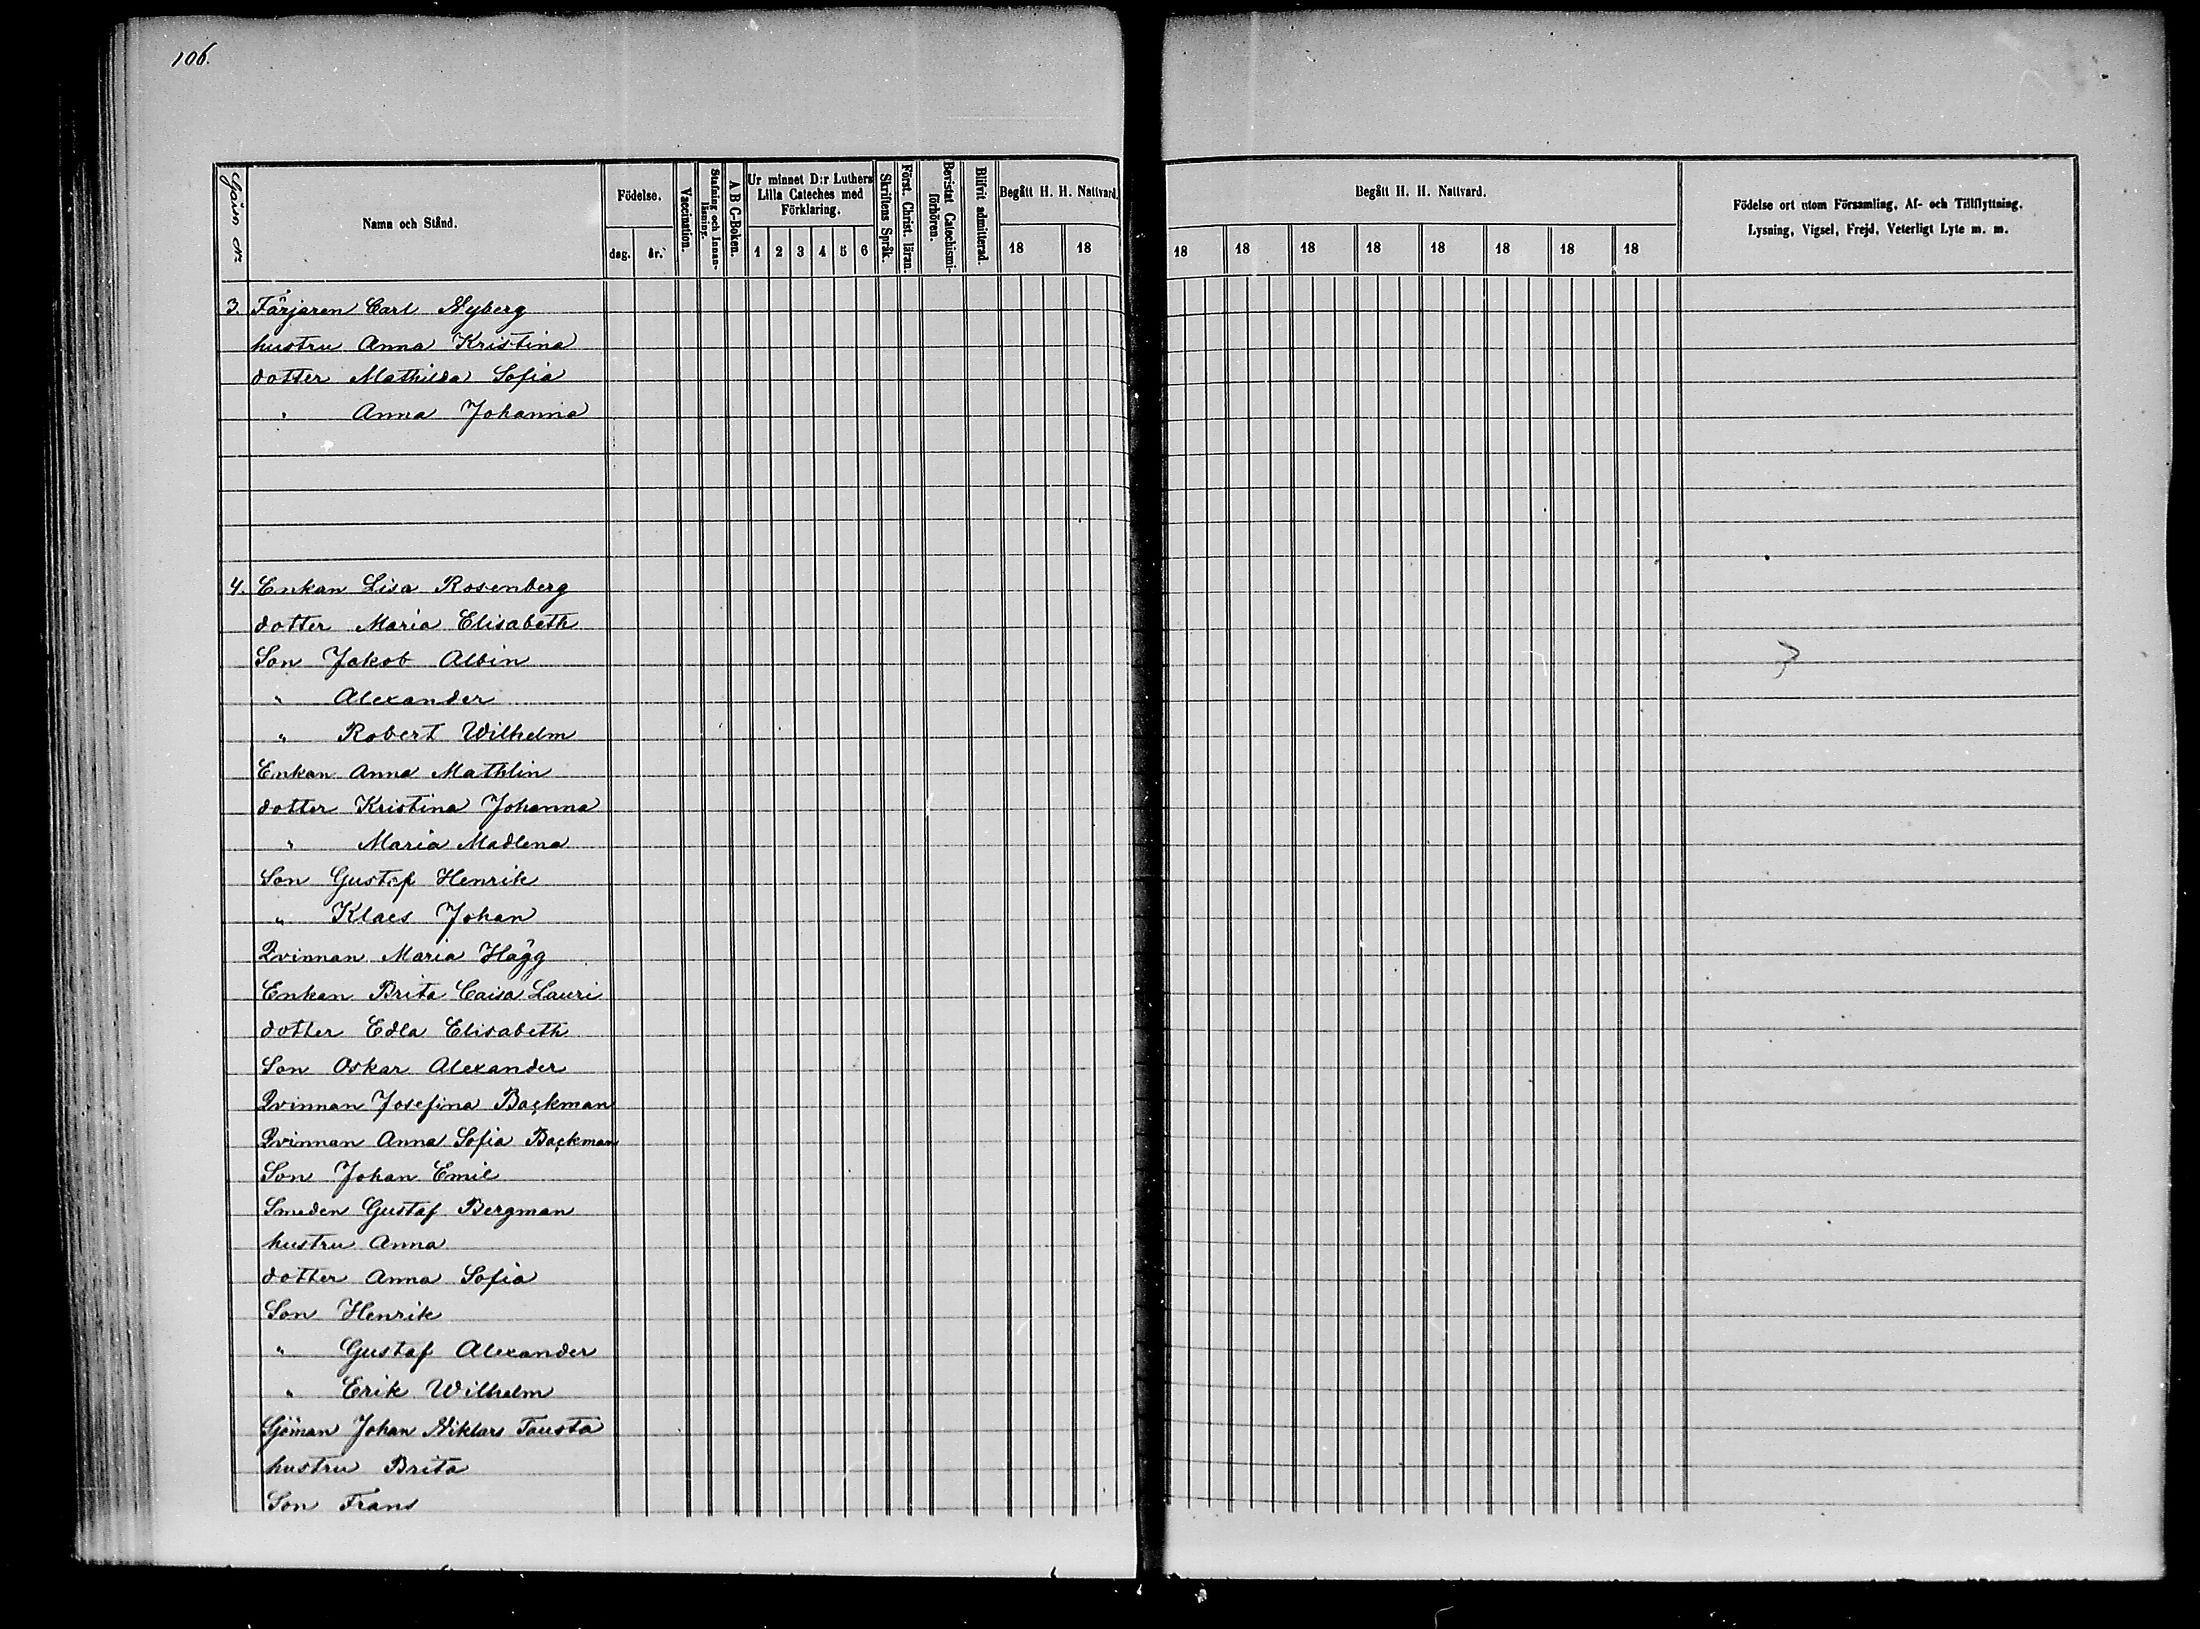 106.
Gård nr
Namn och Stånd.
Födelse.
dag. år.
Vaccination.
Stafning och Innanläsning.
A B C-Boken.
Ur minnet D:r Luthers Lilla Cateches med Förklaring.
1 2 3 4 5 6
Skriftens Språk.
Först. Christ. läran.
Bevistat Catechismiförhören.
Blifvit admitterad.
Begått H. H. Nattvard.
18 18
Begått H. H. Nattvard.
18 18 18 18 18 18 18 18
Födelse ort utom Församling, Af- och Tillflyttning,
Lysning, Vigsel, Frejd, Veterligt Lyte m. m.
3. Färjaren Carl Nyberg
hustru Anna Kristina
dotter Mathilda Sofia
" Anna Johanna
4. Enkan Lisa Rosenberg
dotter Maria Elisabeth
Son Jakob Albin
" Alexander
" Robert Wilhelm
Enkan Anna Mathlin
dotter Kristina Johanna
" Maria Madlena
Son Gustaf Henrik
" Klaes Johan
Qvinnan Maria Hägg
Enkan Brita Caisa Lauri
dotter Edla Elisabeth
Son Oskar Alexander
Qvinnan Josefina Backman
Qvinnan Anna Sofia Backman
Son Johan Emil
Smeden Gustaf Bergman
hustru Anna
dotter Anna Sofia
Son Henrik
" Gustaf Alexander
" Erik Wilhelm
Sjöman Johan Niklas Tausta
hustru Brita
Son Frans